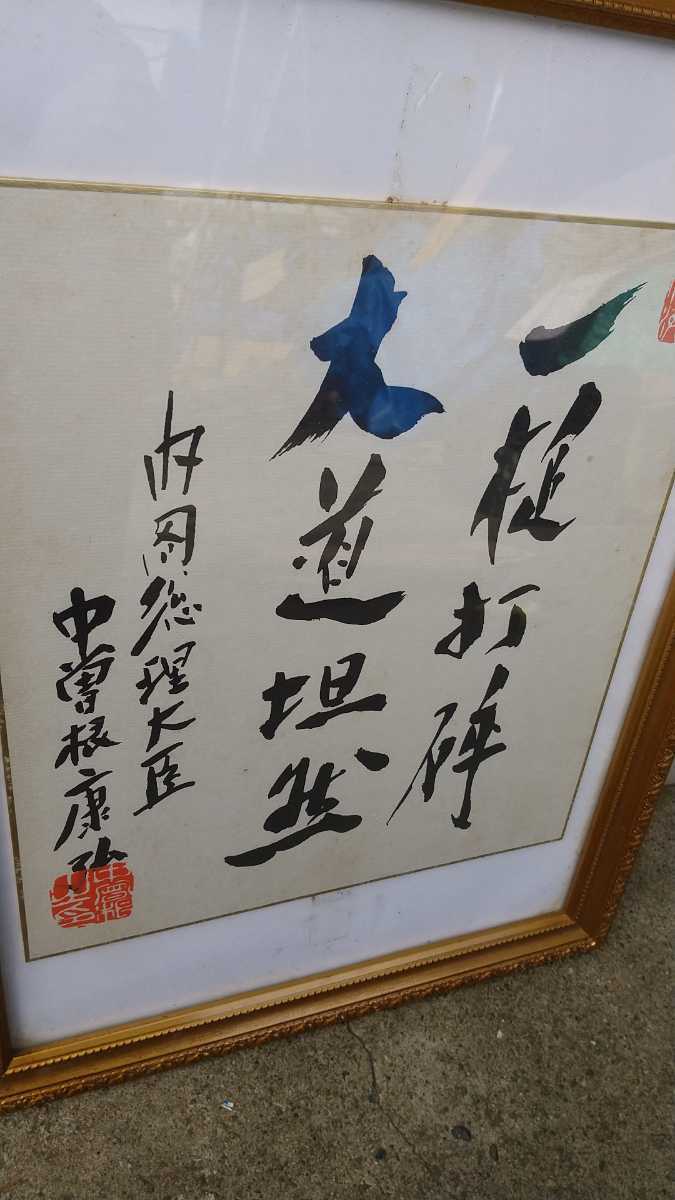 一槌打碎
大道坦然
内閣総理大臣
中曽根康弘